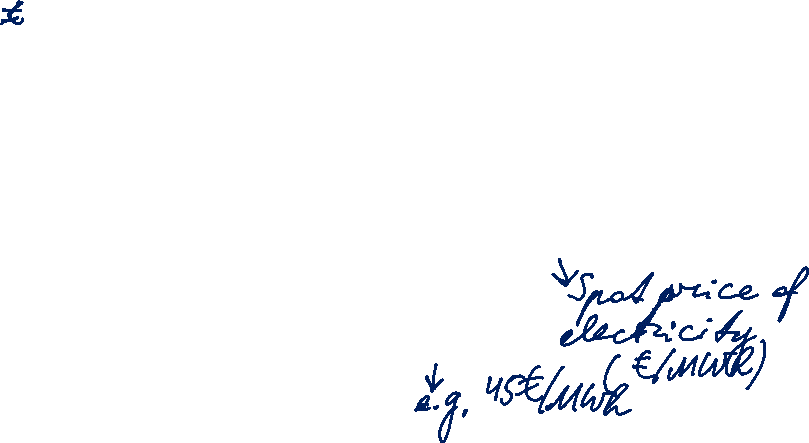 ↓ Spot price of
electricity
(€/MWh)
↓
e.g. 45€/MWh